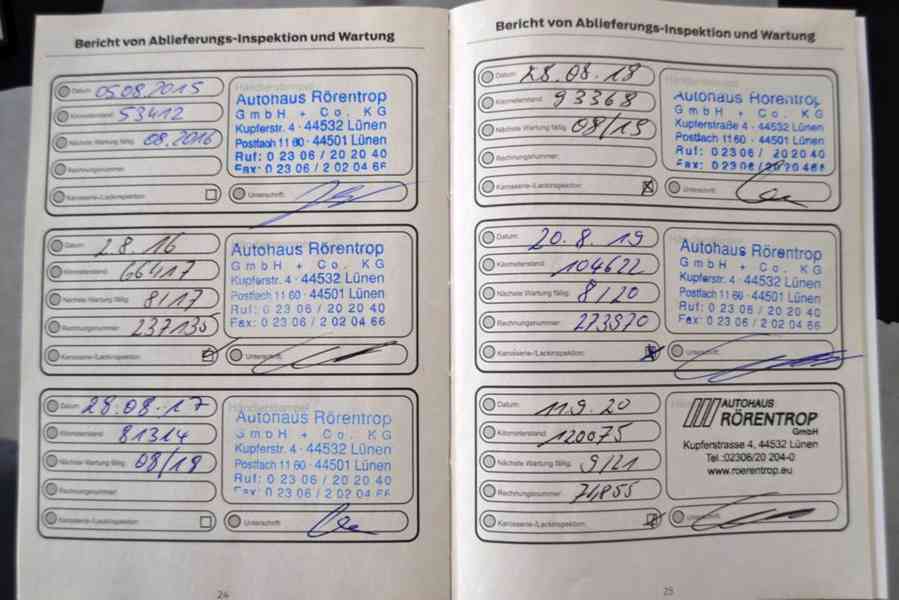 Bericht von Ablieferungs-Inspektion und Wartung
Datum: 05.08.2015
Kilometerstand: 53412
Nächste Wartung fällig: 08.2016
Rechnungsnummer:
Karosserie-/Lackinspektion:
Unterschrift:
Autohaus Rörentrop
GmbH + Co. KG
Kupferstr. 4 · 44532 Lünen
Postfach 11 60 · 44501 Lünen
Ruf: 0 23 06 / 20 20 40
Fax: 0 23 06 / 2 02 04 66
Datum: 2.8.16
Kilometerstand: 66417
Nächste Wartung fällig: 8/17
Rechnungsnummer: 237135
Karosserie-/Lackinspektion:
Unterschrift:
Autohaus Rörentrop
GmbH + Co. KG
Kupferstr. 4 · 44532 Lünen
Postfach 11 60 · 44501 Lünen
Ruf: 0 23 06 / 20 20 40
Fax: 0 23 06 / 2 02 04 66
Datum: 28.08.17
Kilometerstand: 81314
Nächste Wartung fällig: 08/19
Rechnungsnummer:
Karosserie-/Lackinspektion:
Unterschrift:
Autohaus Rörentrop
GmbH + Co. KG
Kupferstr. 4 · 44532 Lünen
Postfach 11 60 · 44501 Lünen
Ruf: 0 23 06 / 20 20 40
Fax: 0 23 06 / 2 02 04 66
24
Bericht von Ablieferungs-Inspektion und Wartung
Datum: 28.08.18
Kilometerstand: 93368
Nächste Wartung fällig: 08/19
Rechnungsnummer:
Karosserie-/Lackinspektion:
Unterschrift:
Autohaus Rörentrop
GmbH + Co. KG
Kupferstraße 4 · 44532 Lünen
Postfach 11 60 · 44501 Lünen
Ruf: 0 23 06 / 20 20 40
Fax: 0 23 06 / 2 02 04 66
Datum: 20.8.19
Kilometerstand: 104622
Nächste Wartung fällig: 8/20
Rechnungsnummer: 273970
Karosserie-/Lackinspektion:
Unterschrift:
Autohaus Rörentrop
GmbH + Co. KG
Kupferstr. 4 · 44532 Lünen
Postfach 11 60 · 44501 Lünen
Ruf: 0 23 06 / 20 20 40
Fax: 0 23 06 / 2 02 04 66
Datum: 11.9.20
Kilometerstand: 120075
Nächste Wartung fällig: 9/21
Rechnungsnummer: 74855
Karosserie-/Lackinspektion:
Unterschrift:
AUTOHAUS
RÖRENTROP
GmbH
Kupferstrasse 4, 44532 Lünen
Tel.:02306/20 204-0
www.roerentrop.eu
25